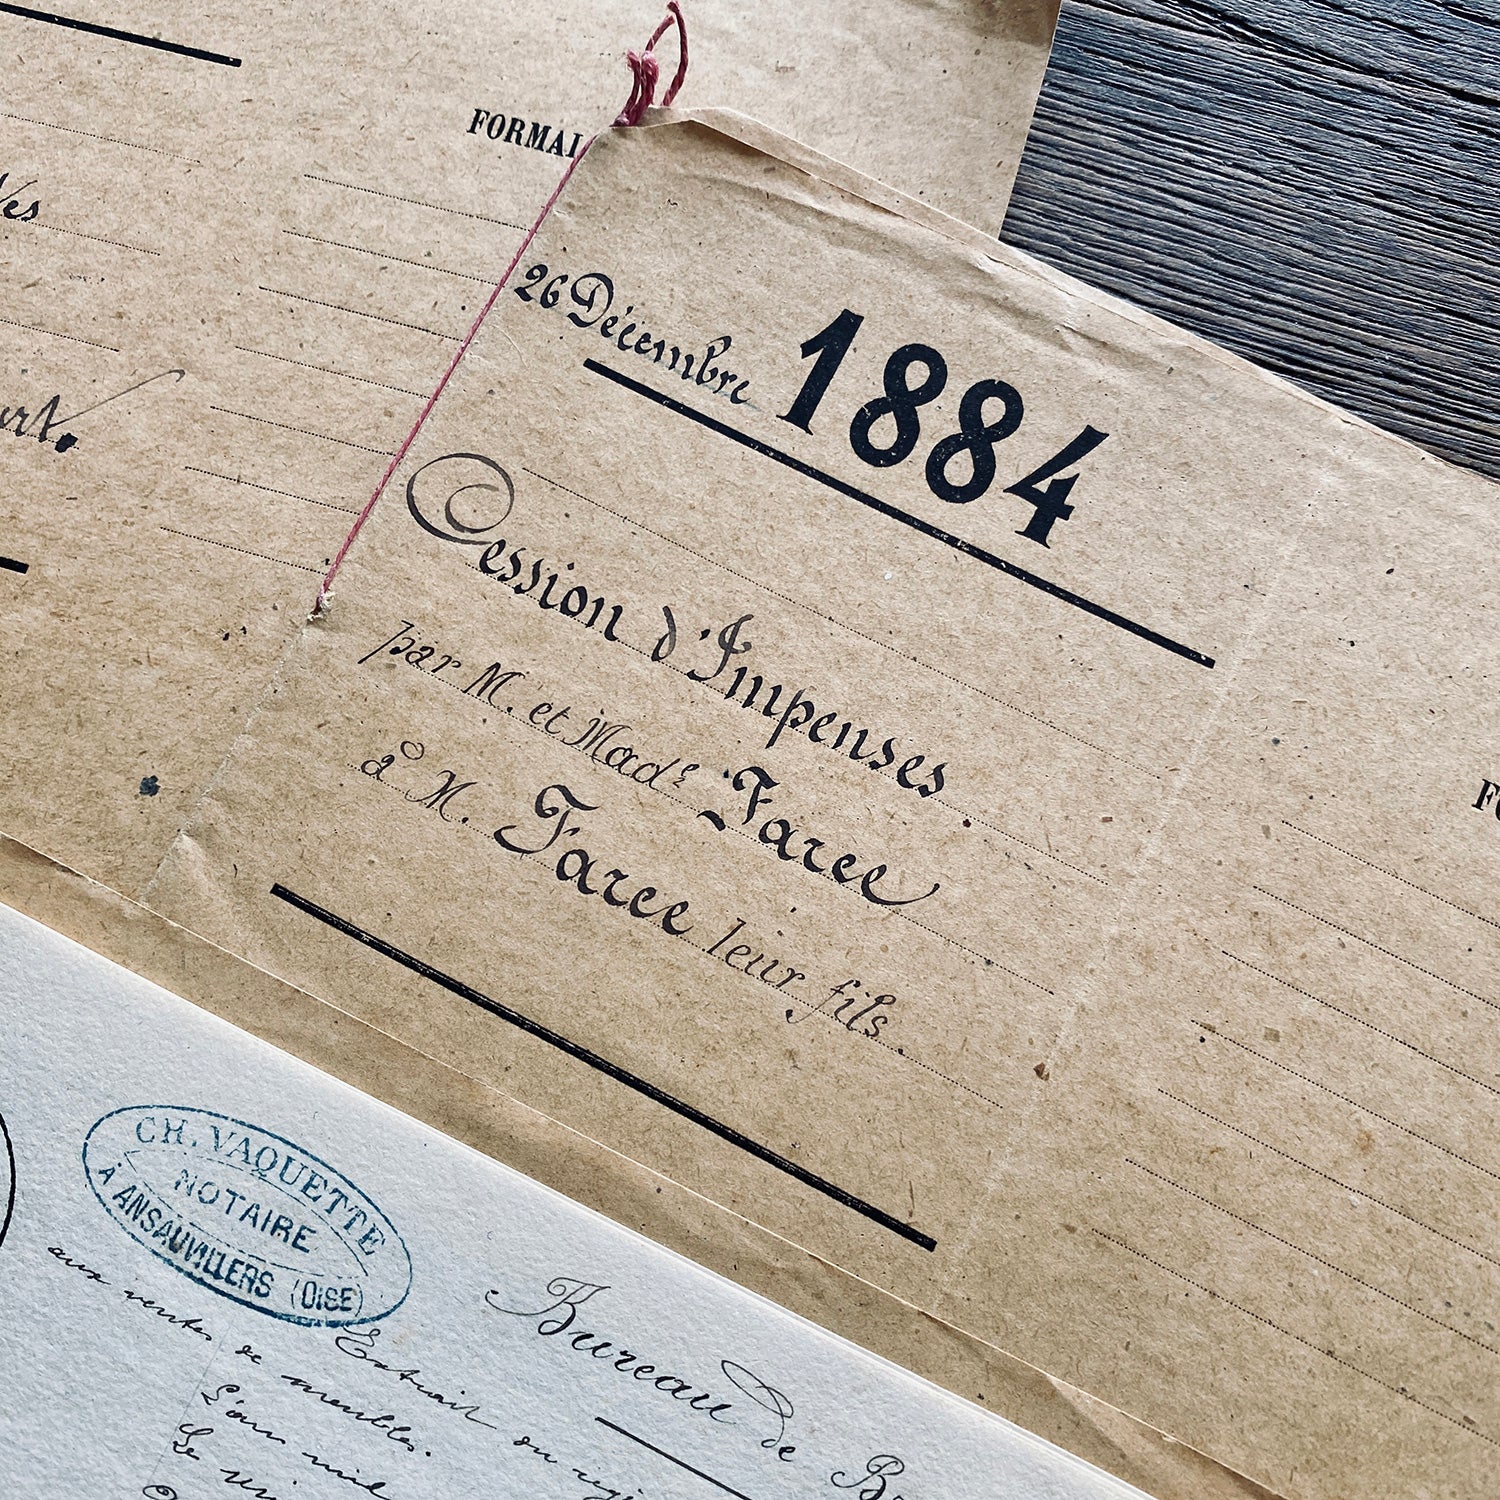 FORMAL
26 Décembre 1884
Cession d'Impenses.
par M. et Mad.e Farce
à M. Farce leur fils.
CH. VAQUETTE
NOTAIRE
À ANSAUVILLERS (OISE)
Bureau de
Extrait du
aux ventes de meubles.
L'an mil
Le